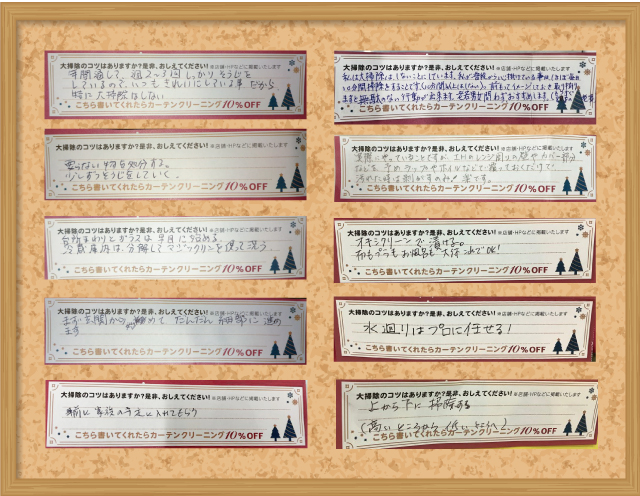 大掃除のコツはありますか?是非、おしえてください! ※店舗・HPなどに掲載いたします
年間通して、週2〜3回しっかりそうじを
しているので、いつもきれいにしている事。だから
特に大掃除はしない
こちら書いてくれたらカーテンクリーニング10%OFF
大掃除のコツはありますか?是非、おしえてください! ※店舗・HPなどに掲載いたします
要らない物を処分する。
少しずつそうじをしていく。
こちら書いてくれたらカーテンクリーニング10%OFF
大掃除のコツはありますか?是非、おしえてください! ※店舗・HPなどに掲載いたします
台所まわりとガラスは早目に始める。
冷蔵庫内は、分解してマジックリンを使って洗う。
こちら書いてくれたらカーテンクリーニング10%OFF
大掃除のコツはありますか?是非、おしえてください! ※店舗・HPなどに掲載いたします
まず玄関から始めてだんだん細部に進め
ます
こちら書いてくれたらカーテンクリーニング10%OFF
大掃除のコツはありますか?是非、おしえてください! ※店舗・HPなどに掲載いたします
家族の予定に入れてもらう
こちら書いてくれたらカーテンクリーニング10%OFF
大掃除のコツはありますか?是非、おしえてください! ※店舗・HPなどに掲載いたします
私は大掃除は、しないことにしています。
こちら書いてくれたらカーテンクリーニング10%OFF
大掃除のコツはありますか?是非、おしえてください! ※店舗・HPなどに掲載いたします
実際にやっていることですが、レンジ周りの壁やカバー部分
などを予めラップやホイルなどで覆っておくだけで
汚れた時は剥がすのみ!楽です。
こちら書いてくれたらカーテンクリーニング10%OFF
大掃除のコツはありますか?是非、おしえてください! ※店舗・HPなどに掲載いたします
オキシクリーンで漬ける。
お風呂も大体これでOK!
こちら書いてくれたらカーテンクリーニング10%OFF
大掃除のコツはありますか?是非、おしえてください! ※店舗・HPなどに掲載いたします
水回りはプロに任せる!
こちら書いてくれたらカーテンクリーニング10%OFF
大掃除のコツはありますか?是非、おしえてください! ※店舗・HPなどに掲載いたします
上から下に掃除する
(高いところから低いところへ)
こちら書いてくれたらカーテンクリーニング10%OFF